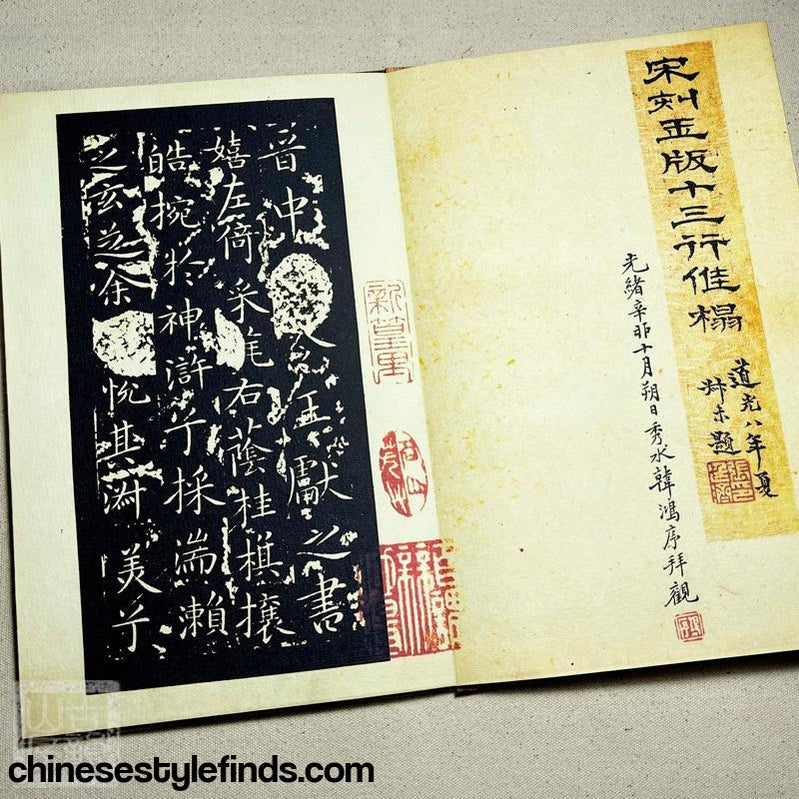 宋刻玉版十三行佳榻
道光八年夏
叔未題
光緒辛卯十月朔日秀水韓鴻序拜觀
晋中令王獻之書
嬉左倚采旄右蔭桂棋攘
皓捥於神滸兮採湍瀨
之玄芝余悅其淑美兮
chinesestylefinds.com